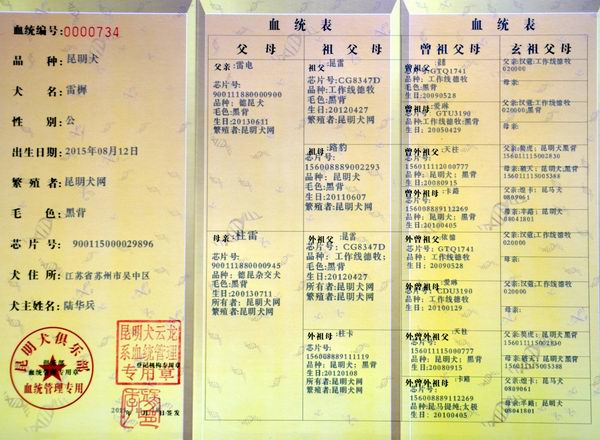 血统编号:0000734
品 种: 昆明犬
犬 名: 雷樨
性 别: 公
出生日期: 2015年08月12日
繁殖者: 昆明犬网
毛 色: 黑背
芯片号: 900115000029896
犬住所: 江苏省苏州市吴中区
犬主姓名: 陆华兵
昆明犬俱乐部
血统管理专用
昆明犬云龙
系血统管理
专用章
血统表
父母
祖父母
父亲:雷电
芯片号:
900111880000900
品种: 德昆犬
生日:20130611
繁殖者:昆明犬网
母亲:杜雷
芯片号:
900111880000945
品种: 德昆杂交犬
生日:200130711
所有者:昆明犬网
繁殖者:昆明犬网
祖父:昆雷
芯片号:CG8347D
品种:工作线德牧
毛色:黑背
生日:20120427
繁殖者:昆明犬网
祖母:路豹
芯片号:
156008889002293
品种: 昆明犬
毛色:黑背
生日:20110607
繁殖者:昆明犬网
外祖父:昆雷
芯片号:CG8347D
品种:工作线德牧;
毛色:黑背
生日:20120427
所有者:昆明犬网
繁殖者:昆明犬网
外祖母:杜卡
芯片号:
156008889111119
品种:昆明犬
生日:20120108
所有者:昆明犬网
繁殖者:昆明犬网
血统表
曾祖父母
玄祖父母
曾祖父:
芯片号:GTQ1741
品种:工作线德牧
毛色:黑背
生日:20090528
曾祖母:爱琳
芯片号: GTU3190
品种:工作线德牧;黑背
生日: 20050429
曾外祖父:天柱
芯片号:
156011112000777
品种: 昆明犬; 黑背
生日:20080915
曾外祖母:卡璐
芯片号:
156008889112269
品种: 昆明犬; 黑背
生日: 20100405
外曾祖父:依德
芯片号:GTQ1741
品种: 昆明犬
生日: 20090528
外曾祖母:爱琳
芯片号:CDU3190
品种: 工作线德牧
生日: 20100129
外曾外祖父:天柱
芯片号:
156011115000777
品种: 昆明犬; 黑背
生日:20080915
外曾外祖母:卡璐
芯片号:
156008889112269
品种:昆马提纯:太极
生日: 20100405
父亲:汉彼:工作线德牧
020000
母亲:
父亲:汉彼:工作线德牧
020000,黑背
母亲:
父亲:獒虎: 昆明犬
156011115002830
母亲:破天: 昆明犬;黑背
156011115005388
父亲:煌卡: 昆马犬
0809061
母亲:半路: 昆明犬
08041801
父亲:汉彼:工作线德牧
020000
母亲:
父亲:汉彼:工作线德牧
母亲:
父亲:獒虎: 昆明犬黑背
156011115002830
母亲:破天: 昆明犬;黑背
156011115005388
父亲:煌卡: 昆明犬
0809061
母亲:半路: 昆明犬
08041801